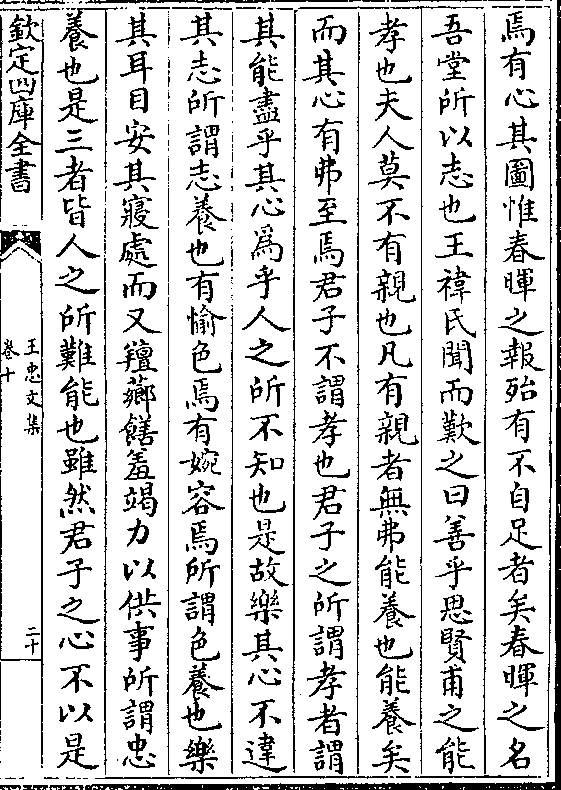 焉有心其圖惟春暉之報殆有不自足者矣春暉之名
吾堂所以志也王禕氏聞而歎之曰善乎思賢甫之能
孝也夫人莫不有親也凡有親者無弗能養也能養矣
而其心有弗至焉君子不謂孝也君子之所謂孝者謂
其能盡乎其心為乎人之所不知也是故樂其心不違
其志所謂志養也有愉色焉有婉容焉所謂色養也樂
其耳目安其寢處而又羶薌饍羞竭力以供事所謂忠
養也是三者皆人之所難能也雖然君子之心不以是
欽定四庫全書
王忠文集
卷十
二十